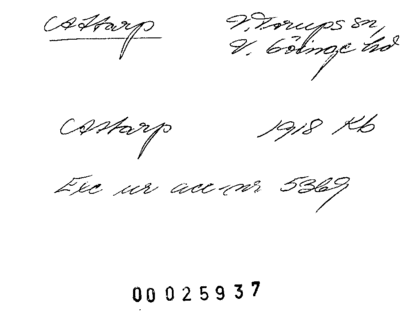 Västarp V. Torups sn,
V. Göinge hd
Västarp 1918 Kb
Exc ur acc-nr 5369
00025937